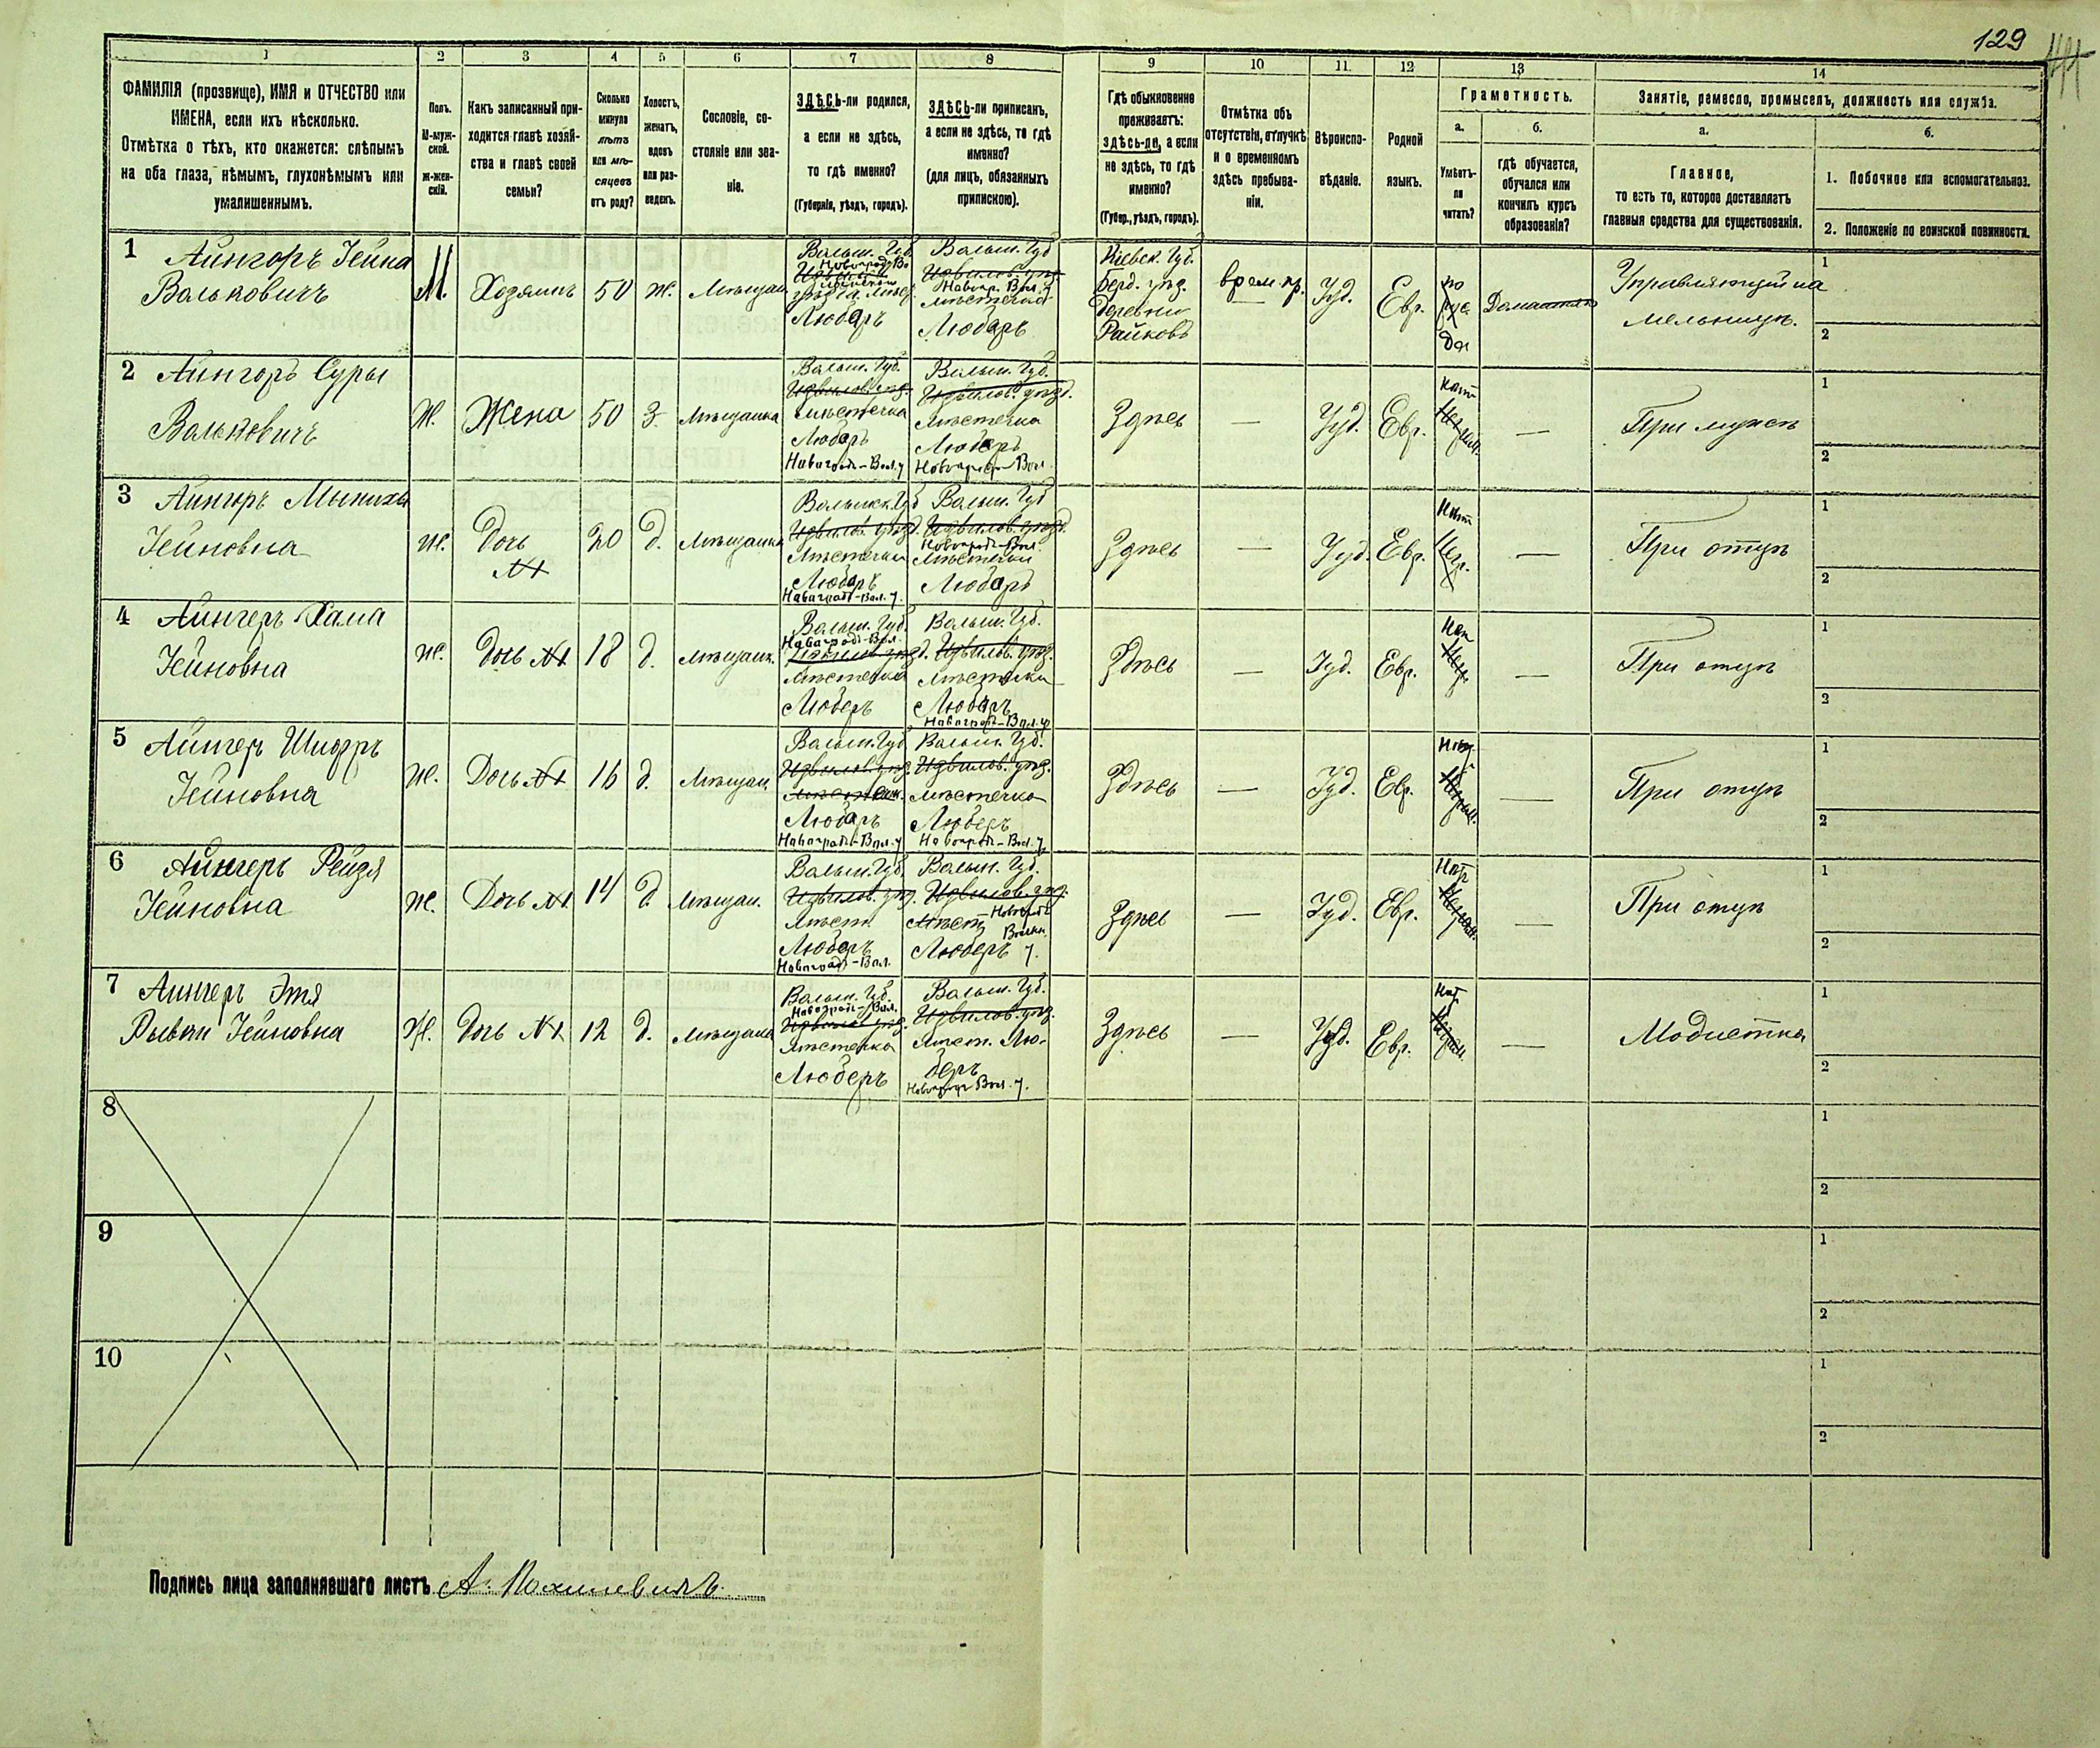 129
1 2 3 4 5 6 7 8 9 10 11 12 13 14
ФАМИЛІЯ (прозвище), ИМЯ и ОТЧЕСТВО или
ИМЕНА, если ихъ нѣсколько.
Отмѣтка о тѣхъ, кто окажется: слѣпымъ
на оба глаза, нѣмымъ, глухонѣмымъ или
умалишеннымъ.
Полъ.
М-муж-
ской.
ж-жен-
скій.
Какъ записанный при-
ходится главѣ хозяй-
ства и главѣ своей
семьи?
Сколько
минуло
лѣтъ
или мѣ-
сяцевъ
отъ роду?
Холостъ,
женатъ,
вдовъ
или раз-
веденъ.
Сословіе, со-
стояніе или зва-
ніе.
ЗДѢСЬ-ли родился,
а если не здѣсь,
то гдѣ именно?
(Губернія, уѣздъ, городъ).
ЗДѢСЬ-ли приписанъ,
а если не здѣсь, то гдѣ
именно?
(для лицъ, обязанныхъ
припискою).
Гдѣ обыкновенно
проживаетъ:
здѣсь-ли, а если
не здѣсь, то гдѣ
именно?
(Губер., уѣздъ, городъ).
Отмѣтка объ
отсутствіи, отлучкѣ
и о временномъ
здѣсь пребыва-
ніи.
Вѣроиспо-
вѣданіе.
Родной
языкъ.
Грамотность.
а.
Умѣетъ-
ли
читать?
б.
гдѣ обучается,
обучался или
кончилъ курсъ
образованія?
Занятіе, ремесло, промыселъ, должность или служба.
а.
Главное,
то есть то, которое доставляетъ
главныя средства для существованія.
б.
1. Побочное или вспомогательное.
2. Положеніе по воинской повинности.
1 Айнгоръ Іейна
Вальковичъ
М.
Хозяинъ
50
ж.
Мѣщан.
Волын. Губ.
Новоград Во
Любаръ
Волын. Губ
Новогр. Вол. у
мѣстечка
Любаръ
Кіевск. Губ.
Берд. уѣзд.
Деревни
Райковъ
врем пр.
Іуд.
Евр.
да
Домашнее
Управляющій на
мельницѣ.
1
2
2 Айнгоръ Суры
Вальковичъ
Ж.
Жена
50
З.
Мѣщанка
Волын. Губ.
Извилов. уѣзд.
мѣстечка
Любаръ
Новоград-Вол. у
Волын. Губ.
Извилов. уѣзд.
мѣстечка
Любаръ
Новоград-Вол.
Здѣсь
—
Іуд.
Евр.
—
При мужѣ
1
2
3 Айнгоръ
Іейновна
ж.
Дочь
№1
20
д.
Мѣщанка
Волынск. Губ
Извилов. уѣзд.
мѣстечка
Любаръ
Новоград-Вол. у.
Волын. Губ
Извилов. уѣзд.
Новоград-Вол.
мѣстечка
Любаръ
Здѣсь
—
Іуд.
Евр.
—
При отцѣ
1
2
4 Айнгеръ Хама
Іейновна
ж.
Дочь №1
18
д.
Мѣщанк.
Волын. Губ.
Новоград-Вол.
Извилов. уѣзд.
мѣстечка
Люберъ
Волын. Губ.
Извилов. уѣзд.
мѣстечка
Любаръ
Новоград-Вол. у
Здѣсь
—
Іуд.
Евр.
—
При отцѣ
1
2
5 Айнгеръ
Іейновна
Ж.
Дочь №1
16
д.
Мѣщан.
Волын. Губ
Извилов. уѣзд.
мѣстечк.
Любаръ
Новоград-Вол. у
Волын. Губ.
Извилов. уѣзд.
мѣстечка
Люберъ
Новоград-Вол. у.
Здѣсь
—
Іуд.
Евр.
—
При отцѣ
1
2
6 Айнгеръ Рейзя
Іейновна
Ж.
Дочь №1
14
д.
Мѣщан.
Волын. Губ.
Извилов. уѣзд.
мѣст.
Люберъ
Новоград-Вол.
Волын. Губ.
Извилов. уѣзд.
мѣст. Новоград
Волын.
Люберъ у.
Здѣсь
—
Іуд.
Евр.
—
При отцѣ
1
2
7 Айнгеръ Этя
Рывки Іейновна
Ж.
Дочь №1
12
д.
Мѣщанка
Волын. Губ.
Новоград-Вол.
мѣстечка
Люберъ
Волын. Губ.
Извилов. уѣзд.
мѣст. Лю-
беръ
Новоград Вол. у.
Здѣсь
—
Іуд.
Евр.
—
Модистка
1
2
8
1
2
9
1
2
10
1
2
Подпись лица заполнявшаго листъ